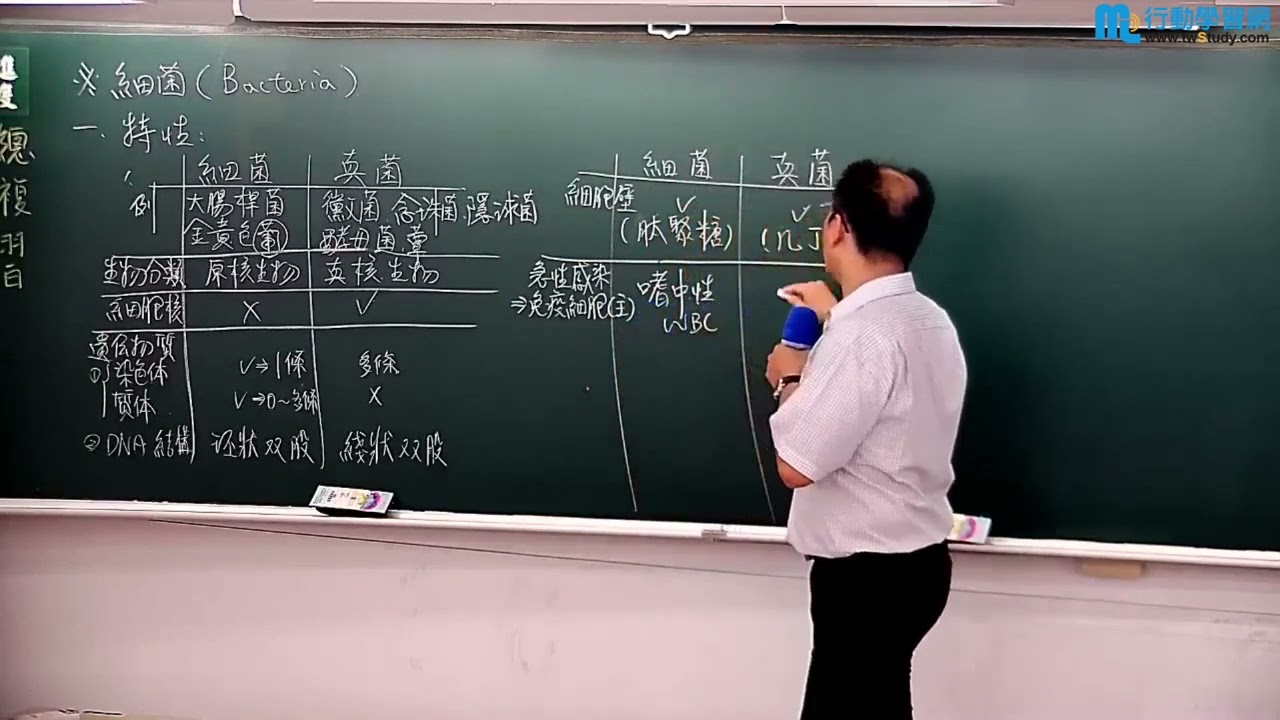 行動學習網
www.twStudy.com
進度
總複習
※ 細菌 (Bacteria)
一. 特性:
細菌 真菌
例 大腸桿菌 黴菌、念珠菌、隱球菌
金黃色(葡) 酵母菌、蕈
生物分類 原核生物 真核生物
細胞核 X ✓
遺傳物質
①染色體 ✓⇒1條 多條
質体 ✓⇒0~多條 X
② DNA 結構 环狀双股 綫狀双股
細菌 真菌
細胞壁 ✓ ✓
(肽聚糖) (几丁
急性感染 嗜中性
⇒免疫細胞(主) WBC